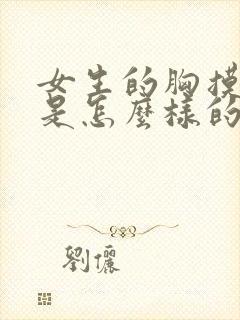 女生的胸摸
是怎麼樣的
劉儷